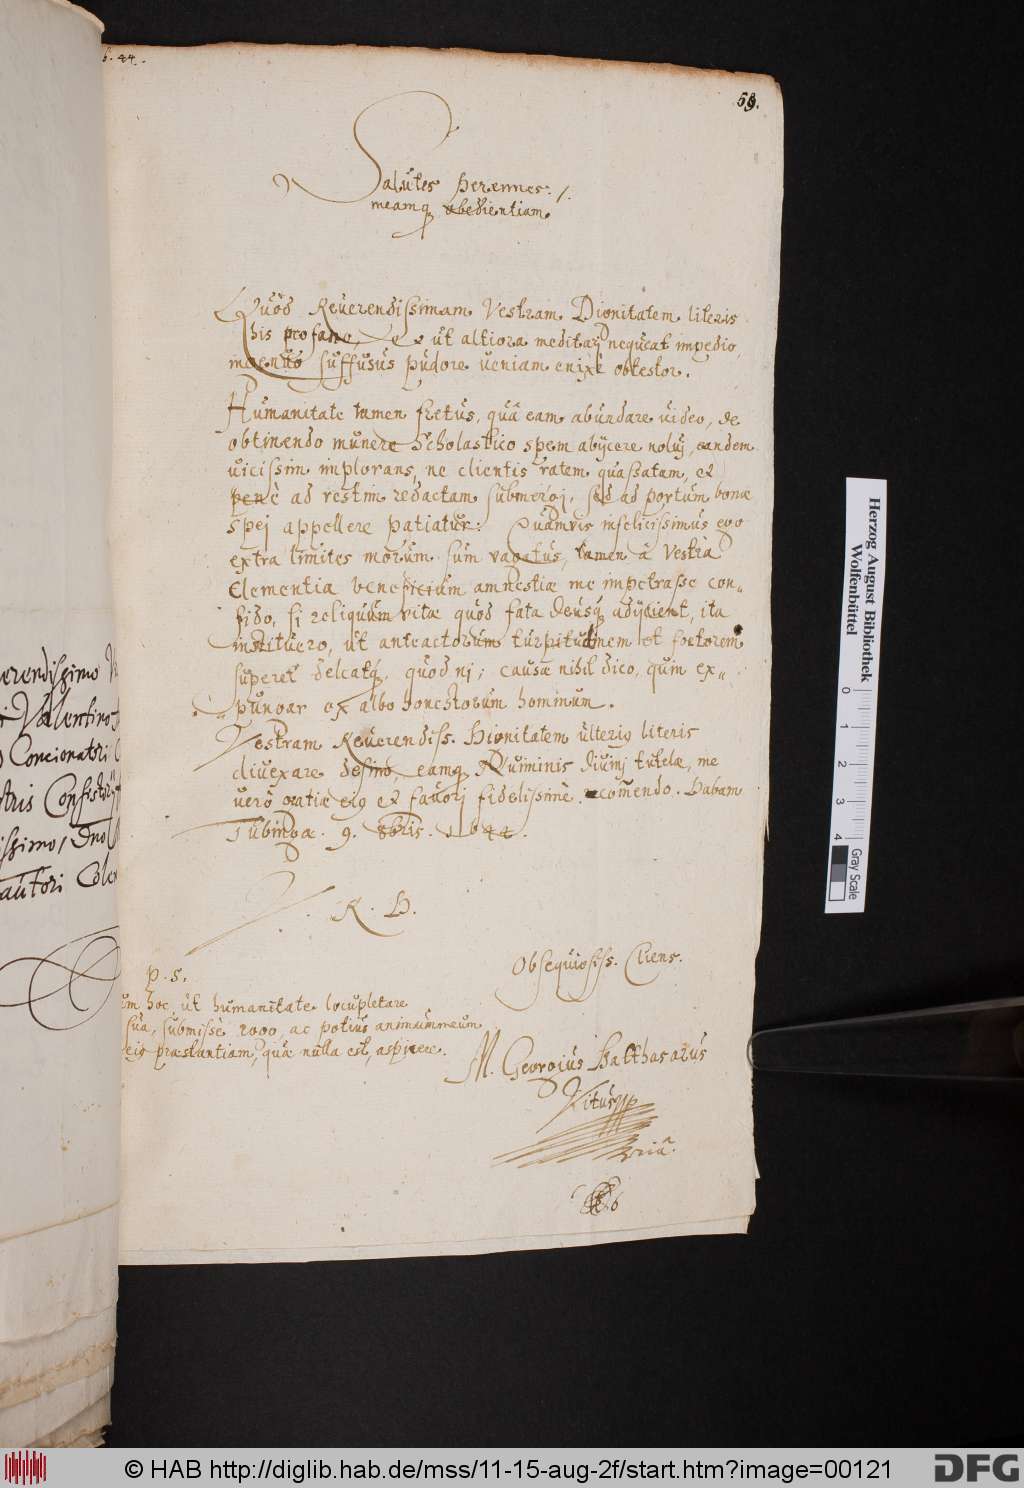 b. 44.
59.
Salutes perennes
meamq obedientiam.
Quod Reverendissimam Vestram Dignitatem literis
his profano, ut altiora meditari nequeat impedio,
ingenuo suffusus pudore veniam enixè obtestor.
Humanitate tamen fretus, quâ eam abundare video, de
obtinendo munere Scholastico spem abijcere noluj, eandem
vicissim implorans, ne clientis ratem quassatam, et
penè ad restim redactam submergj, sed ad portum bonæ
spej appellere patiatur: Quamvis infelicissimus ego
extra limites morum sum vagatus, tamen à Vestrâ
Clementia beneficium amnestiæ me impetrasse con„
fido, si reliquum vitæ quod fata Deusq adijcient, ita
instituero, ut anteactorum turpitudinem et foetorem
superet deleatq. quod nj; causæ nihil dico, quin ex„
„pungar ex albo honestorum hominum.
Vestram Reverendiss. Dignitatem ulterig literis
divexare desino, eamq Numinis divinj tutelæ, me
verò gratiæ eig et favorj fidelissimè recomendo. Dabam
Tubingæ. 9. 8bris. 1644.
V. R. D.
Obsequiosiss. Cliens.
p. s.
um hoc, ut humanitate locupletare
sua, submissè rogo, ac potius animum meum
eig præstantiam, quæ nulla est, aspicere.
M. Georgius Balthasarus
Vitus
erendissimo
Valentino
Concionatori
stris Consistorij
issimo, Dno
autori Cole
Herzog August Bibliothek
Wolfenbüttel
0 1 2 3 4
Gray Scale
© HAB http://diglib.hab.de/mss/11-15-aug-2f/start.htm?image=00121
DFG